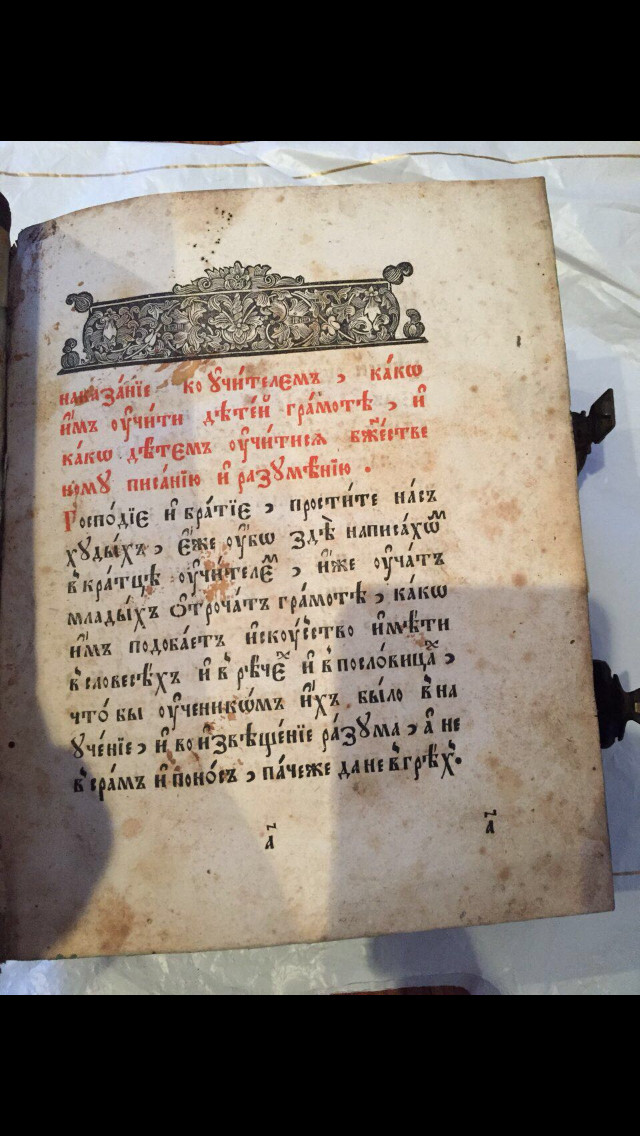 наказа́нїе ко ᲂу҆чи́телемъ , ка́кѡ
и҆̀мъ ᲂу҆чи́ти дѣте́й гра́мотѣ , и҆
ка́кѡ дѣ́темъ ᲂу҆чи́тисѧ бж҃е́стве
ному писа́нїю и҆ разꙋмѣ́нїю .
Госпо́дїе и҆ бра́тїе , прости́те на́съ
хꙋды́хъ , є҆́же ᲂу҆́бѡ здѣ̀ написа́хѡⷨ
в̾кра́тцѣ ᲂу҆чи́телеⷨ , и҆́же ᲂу҆ча́тъ
млады́хъ ѻ҆троча́тъ гра́мотѣ , ка́кѡ
и҆̀мъ подоба́етъ и҆скꙋ́сство и҆мѣ́ти
в̾словесѣ́хъ и҆ в̾рѣ́чеⷯ и҆ в̾посло́вицаⷯ ,
что́ бы ᲂу҆ченикѡ́мъ и҆́хъ бы́ло в̾на
ᲂу҆че́нїе , и҆ во и҆звѣще́нїе ра́зꙋма , а҆ не
в̾сра́мъ и҆ поно́съ , па́чеже да не в̾грѣ́хъ .
а҃ а҃